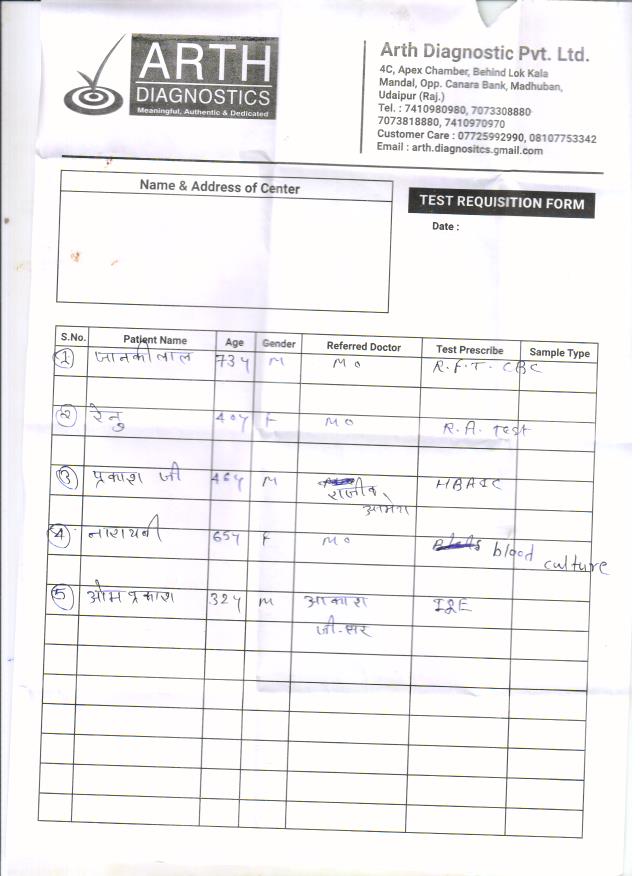 ARTH
DIAGNOSTICS
Meaningful, Authentic & Dedicated
Arth Diagnostic Pvt. Ltd.
4C, Apex Chamber, Behind Lok Kala
Mandal, Opp. Canara Bank, Madhuban,
Udaipur (Raj.)
Tel. : 7410980980, 7073308880
7073818880, 7410970970
Customer Care : 07725992990, 08107753342
Email : arth.diagnositcs.gmail.com
Name & Address of Center
TEST REQUISITION FORM
Date :
S.No. Patient Name Age Gender Referred Doctor Test Prescribe Sample Type
1 जानकीलाल 73y M MO R.F.T. CBC
2 रेनु 40y F MO R.A. Test
3 प्रकाश जी 46y M राजीव HBA1C
आमेरा
4 नारायणी 65y F MO blood culture
5 ओम प्रकाश 32y M आकाश IgE
जी-सर